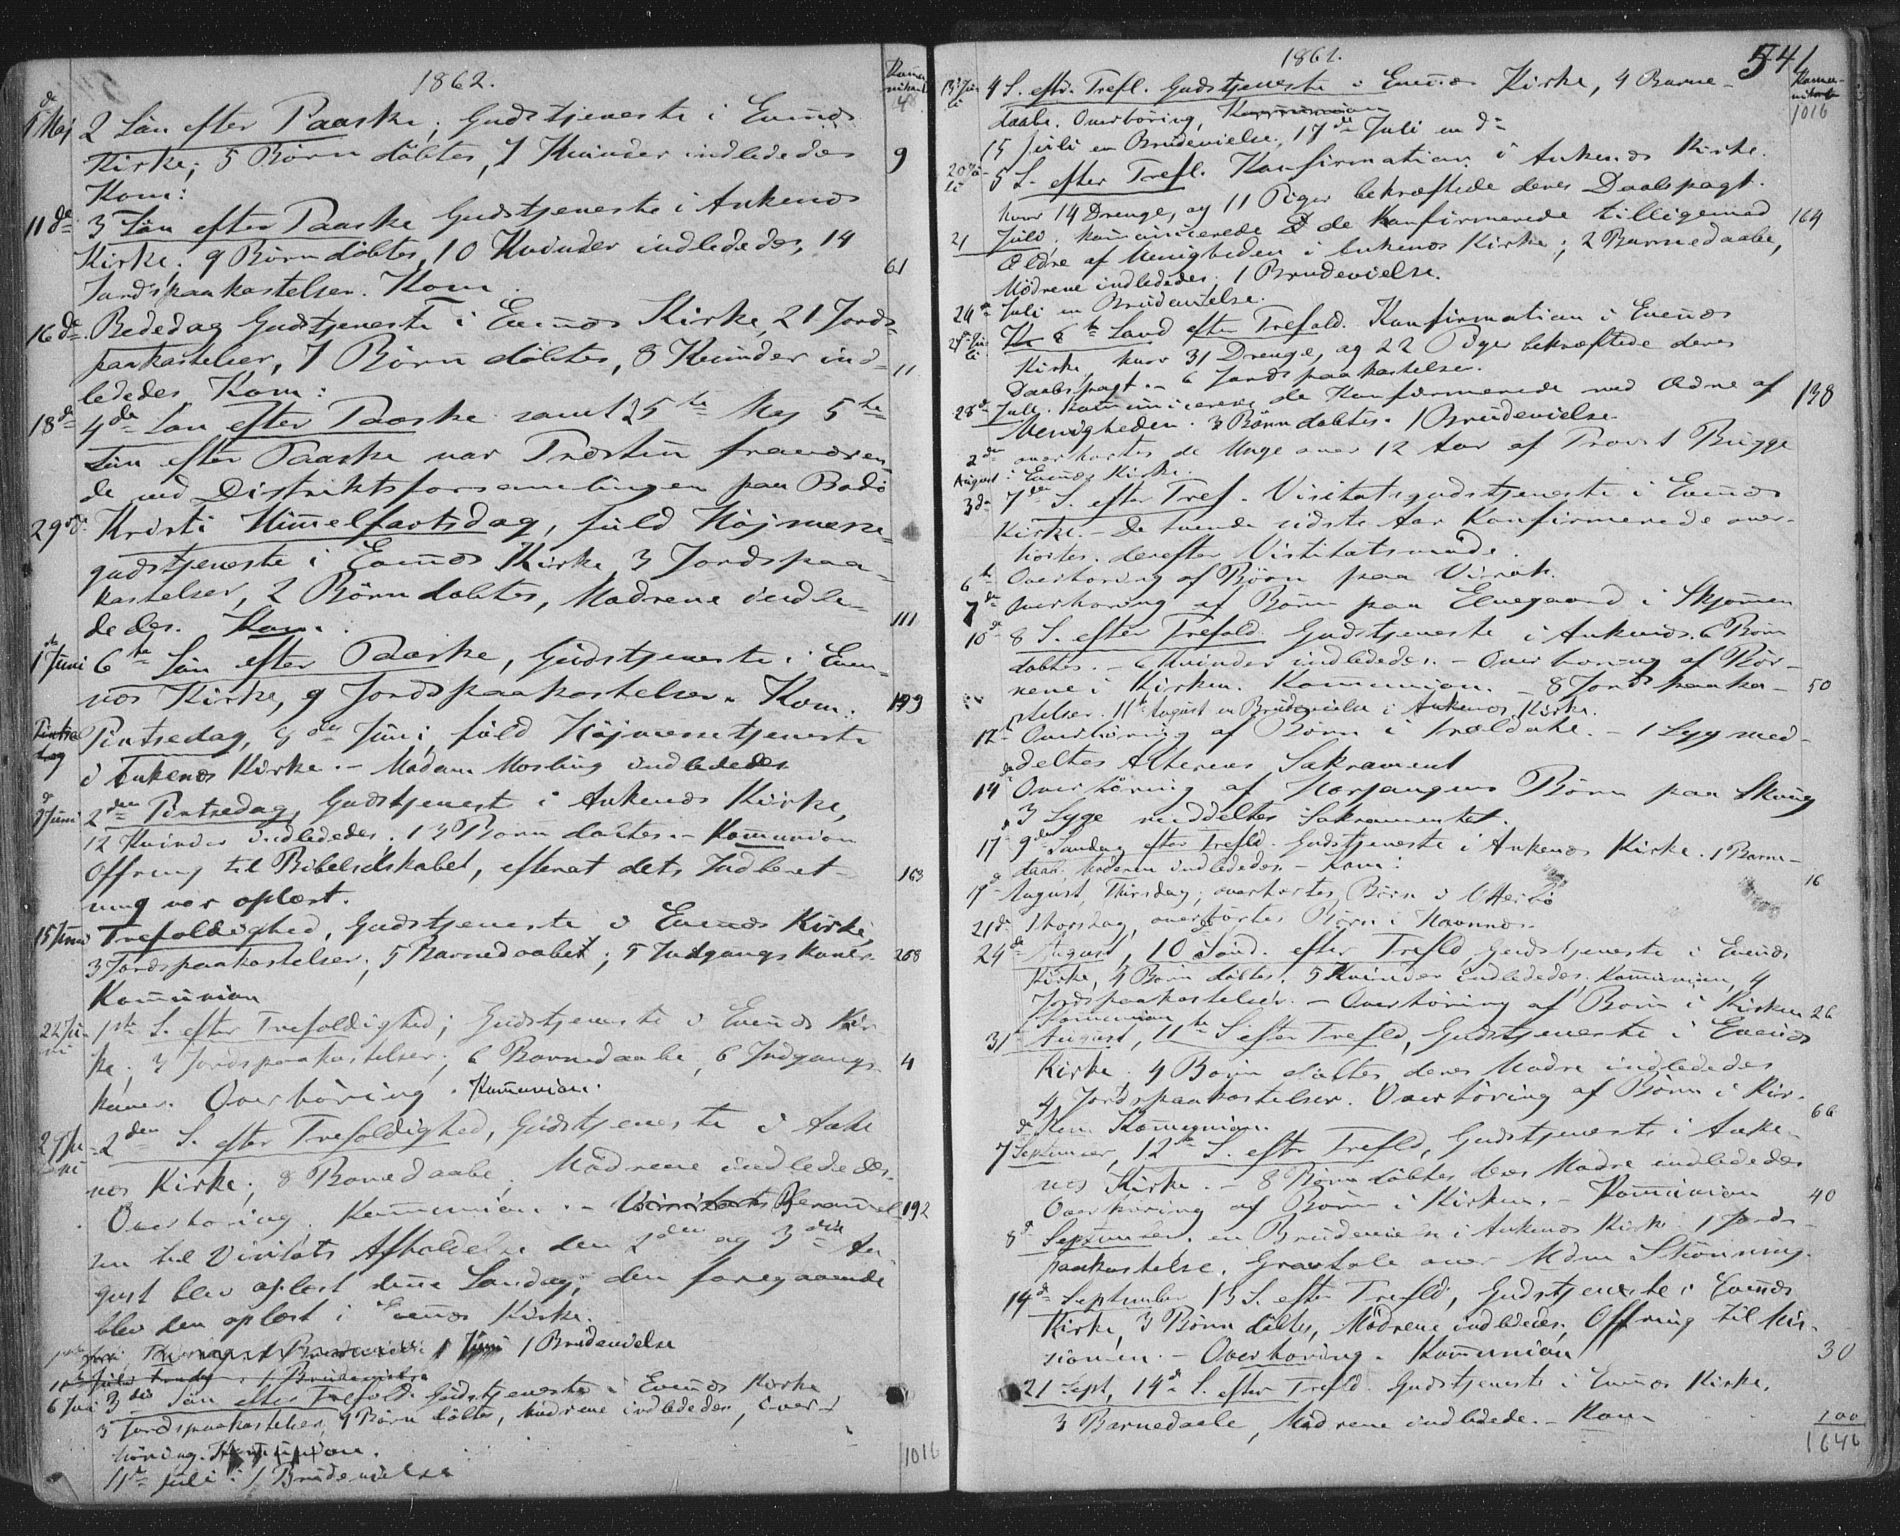 1862.
Kommu-
nikant
4 Maj 2 Søn efter Paaske, Gudstjeneste i Evenæs
Kirke; 5 Børn döbtes, 7 Kvinder indlededes 9
Kom:
11de 3 Søn efter Paaske Gudstjeneste i Ankenæs
Kirke. 9 Børn döbtes, 10 Kvinder indlededes, 14
Jordspaakastelser. Kom. 61
16de Bededag Gudstjeneste i Evenæs Kirke, 21 Jords-
paakastelser, 7 Børn döbtes, 8 Kvinder ind-
ledede. Kom: 11
18de 4de Søn efter Paaske samt 25te Maj 5te
Søn efter Paaske var Præsten fraværen-
de ved Distriktsforsamlingen paa Bodö
29de Kristi Himmelfartsdag, fuld Højmesse-
gudstjeneste i Evenæs Kirke, 3 Jordspaa-
kastelser, 2 Börn döbtes, Mödrene indle-
dedes. Kom. 111
1 Juni 6te Søn efter Paaske, Gudstjeneste i Even-
næs Kirke, 9 Jordspaakastelser. Kom: 199
Pintsedag Pintsedag, 8de Juni, fuld Højmessetjeneste
i Ankenæs Kirke. - Madam Mosling indlededes
9 Juni 2den Pintsedag, Gudstjeneste i Ankenæs Kirke,
12 Kvinder indlededes, 13 Børn döbtes. - Kommunion
Offring til Bibelselskabet, efterat dets Indberet- 163
ning var oplæst.
15 Juni Trefoldighed, Gudstjeneste i Evenæs Kirke,
3 Jordspaakastelser, 5 Barnedaabe; 5 Indgangskoner 208
Kommunion
22 Ju-
ni 1ste S. efter Trefoldighed; Gudstjeneste i Evenæs Kir-
ke, 3 Jordspaakastelser; 6 Barnedaabe, 6 Indgangs- 4
koner. Overhöring. Kommunion.
29 Ju-
ni 2den S. efter Trefoldighed, Gudstjeneste i Anke-
næs Kirke, 8 Barnedaabe, Mödrene indlededes.
Overhöring. Kommunion. - 192
til Visitats Afholdelse den 2den og 3die Au-
gust blev oplæst denne Søndag, den foregaaende
blev den oplæst i Evenæs Kirke.
1 Juni 1 Brudevielse
6 Juli 3die Søn efter Trefold. Gudstjeneste i Evenæs Kirke
5 Jordspaakastelser, 9 Börn döbte, Mödrene indlededes, Over-
höring. Kommunion.
11te Juli: 1 Brudevielse
1016
1862. 541
Kommu-
nikant
1016
13 Ju-
li 4 S. eftr. Trefl. Gudstjeneste i Evenæs Kirke, 4 Barne-
daabe. Overhöring, Kommunion
15 Juli en Brudevielse, 17de Juli en do
20 Ju-
li 5 S. efter Trefl. Konfirmation i Ankenæs Kirke.
hvor 14 Drenge, og 11 Piger bekræftede deres Daabspagt.
21 Juli, kommunicerede de Konfirmerede tilligemed 164
Ældre af Menigheden i Ankenæs Kirke; 2 Barnedaabe,
Mødrene indlededes. 1 Brudevielse.
24de Juli en Brudevielse.
27 Ju-
li 6te Sønd efter Trefold. Konfirmation i Evenæs
Kirke, hvor 31 Drenge, og 22 Piger bekræftede deres
Daabspagt. - 6 Jordspaakastelser.
28de Juli. kommunicerede de Konfirmerede med Ældre af 138
Menigheden. 3 Børn döbtes. 1 Brudevielse.
2de overhörtes de Unge over 12 Aar af Provst Bugge
August i Evenæs Kirke.
3de 7de S. efter Tref. Visitatsgudstjeneste i Evenæs
Kirke. - De tvende sidste Aar Konfirmerede over-
hörtes. derefter Visitatsmöde.
6te Overhöring af Börn paa Virak.
7de Overhöring af Börn paa Elvegaard i Skjomen
10de 8 S. efter Trefold. Gudstjeneste i Ankenæs. 6 Börn
döbtes. - 6 Kvinder indlededes. - Overhöring af Bör-
nene i Kirken. Kommunion. - 8 Jordspaaka- 50
stelser. 11te August en Brudevielse i Ankenæs Kirke.
12te Overhöring af Börn i Trældahl. - 1 Syg med-
deltes Alterens Sakrament
14de Overhöring af Herjangens Börn paa
3 Syge meddeltes Sakramentet.
17de 9de Søndag efter Trefld. Gudstjeneste i Ankenæs Kirke. 1 Barne-
daab. Moderen indlededes. - Kom: 16
August, overhörtes Börn i
21de Thorsdag, overhörtes Börn i Havnnæs.
24de August, 10 Sönd. efter Trefld, Gudstjeneste i Evenæs
Kirke, 4 Börn döbtes, 5 Kvinder indlededes. Kommunion, 4
Jordspaakastelser. - Overhöring af Börn i Kirken 26
Kommunion
31te August, 11te S. efter Trefld, Gudstjeneste i Evenæs
Kirke. 4 Börn döbtes deres Mödre indlededes
4 Jordspaakastelser. Overhöring af Börn i Kir-
ken Kommunion. 66
7de September, 12te S. eftr Trefld, Gudstjeneste i Anke-
næs Kirke. - 8 Börn döbtes deres Mödre indlededes
Overhöring af Börn i Kirken. - Kommunion 40
8de September, en Brudevielse i Ankenæs Kirke. 1 Jords-
paakastelse. Gravtale over Mdm Stönning.
14de September 13 S. efter Trefld, Gudstjeneste i Evenæs
Kirke, 3 Börn döbtes, Mödrene indlededes, Offring til Mis-
sionen. - Overhöring. Kommunion 30
21 Sept, 14de S. efter Trefld. Gudstjeneste i Evenæs Kirke.
3 Barnedaabe, Mødrene indledede. - Kom 100
1646